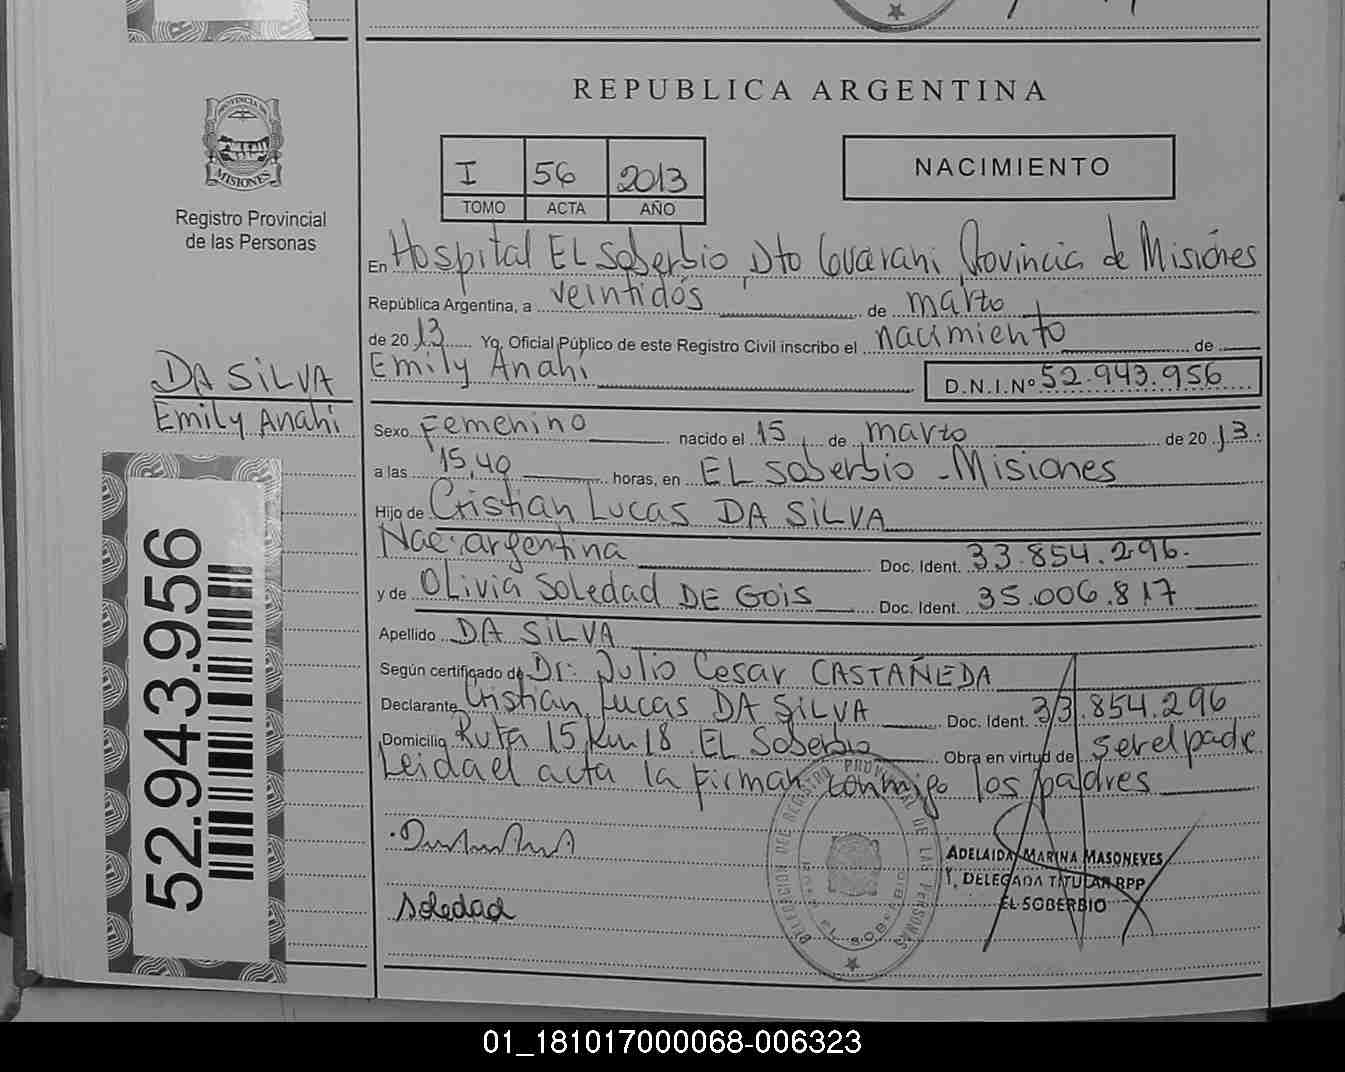 REPUBLICA ARGENTINA
PROVINCIA DE
MISIONES
Registro Provincial
de las Personas
I 56 2013
TOMO ACTA AÑO
NACIMIENTO
En Hospital EL Soberbio, Dto Guarani, Provincia de Misiónes
República Argentina, a veintidós de marzo
de 2013 Yo, Oficial Público de este Registro Civil inscribo el nacimiento de
Emily Anahi D.N.I.Nº 52.943.956
DA SiLVA
Emily Anahi
Sexo Femenino nacido el 15 de marzo de 2013.
a las 15,40 horas, en EL Soberbio - Misiones
Hijo de Cristian Lucas DA SiLVA
Nac: argentina Doc. Ident. 33.854.296.
y de OLivia Soledad DE GOiS Doc. Ident. 35.006.817
Apellido DA SiLVA
Según certificado de Dr: Julio Cesar CASTAÑEDA
Declarante Cristian Lucas DA SiLVA Doc. Ident. 33.854.296
Domicilio Ruta 15 Km 18 EL Soberbio Obra en virtud de ser el padre
Leida el acta la firman conmigo los padres
52.943.956
DELEGACION DEL REGISTRO PROVINCIAL DE LAS PERSONAS
EL SOBERBIO
ADELAIDA MARINA MASONEVES
DELEGADA TITULAR RPP
EL SOBERBIO
Soledad
01_181017000068-006323